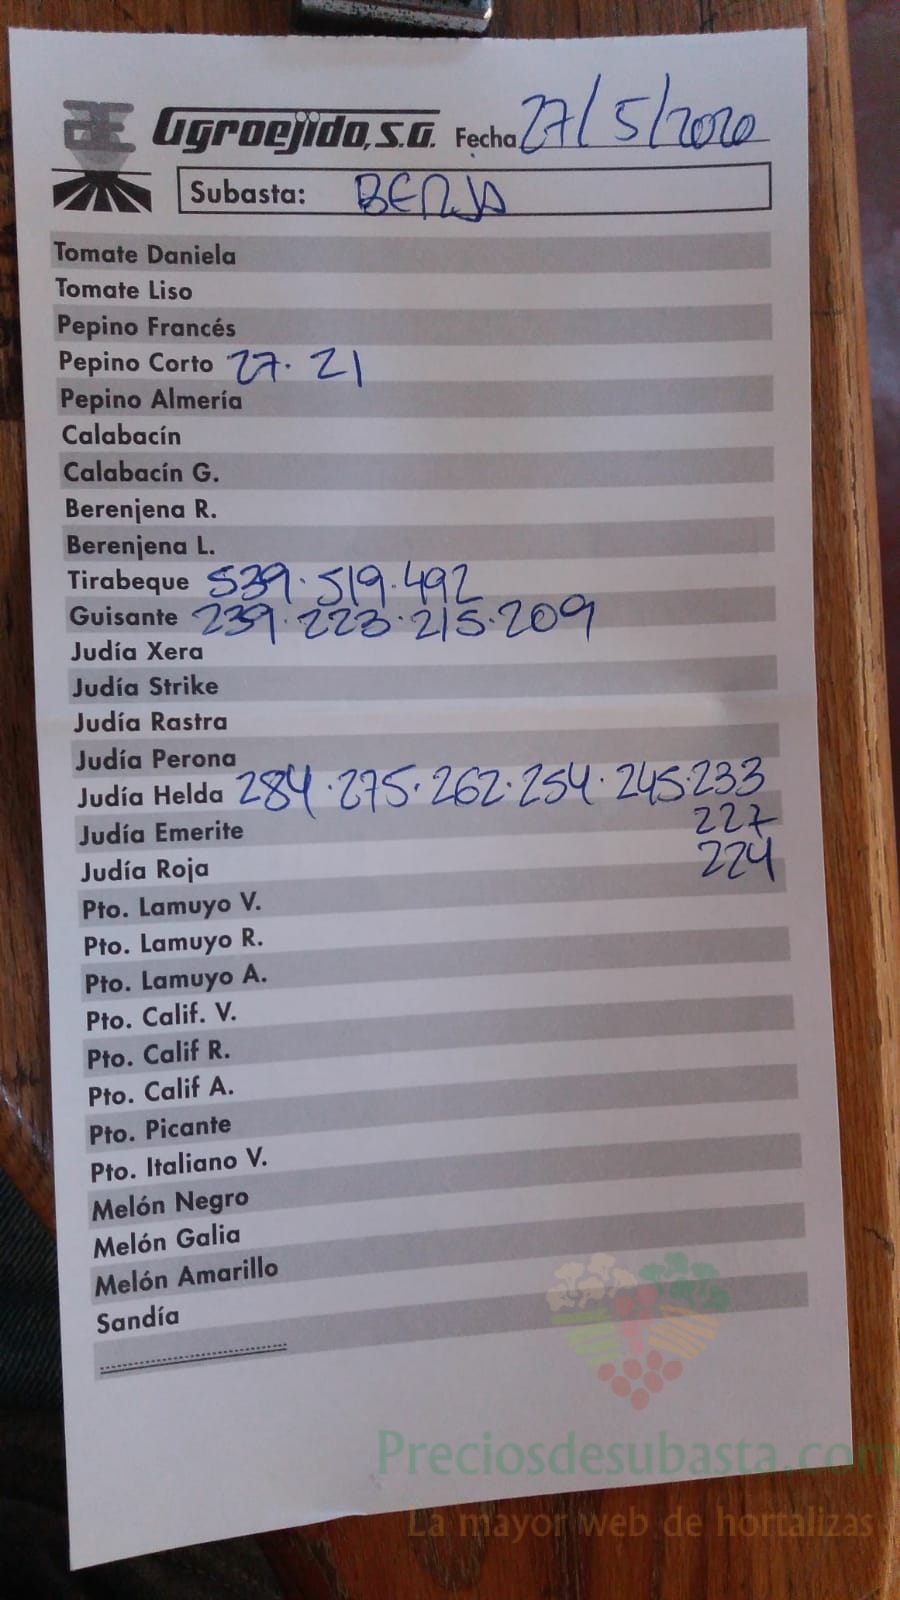 agroejido, s.a. Fecha 27/5/2020
Subasta: BERJA
Tomate Daniela
Tomate Liso
Pepino Francés
Pepino Corto 27. 21
Pepino Almería
Calabacín
Calabacín G.
Berenjena R.
Berenjena L.
Tirabeque 539. 519. 492
Guisante 239. 223. 215. 209
Judía Xera
Judía Strike
Judía Rastra
Judía Perona
Judía Helda 284. 275. 262. 254. 245. 233
Judía Emerite 227
Judía Roja 224
Pto. Lamuyo V.
Pto. Lamuyo R.
Pto. Lamuyo A.
Pto. Calif. V.
Pto. Calif R.
Pto. Calif A.
Pto. Picante
Pto. Italiano V.
Melón Negro
Melón Galia
Melón Amarillo
Sandía
Preciosdesubasta.com
La mayor web de hortalizas